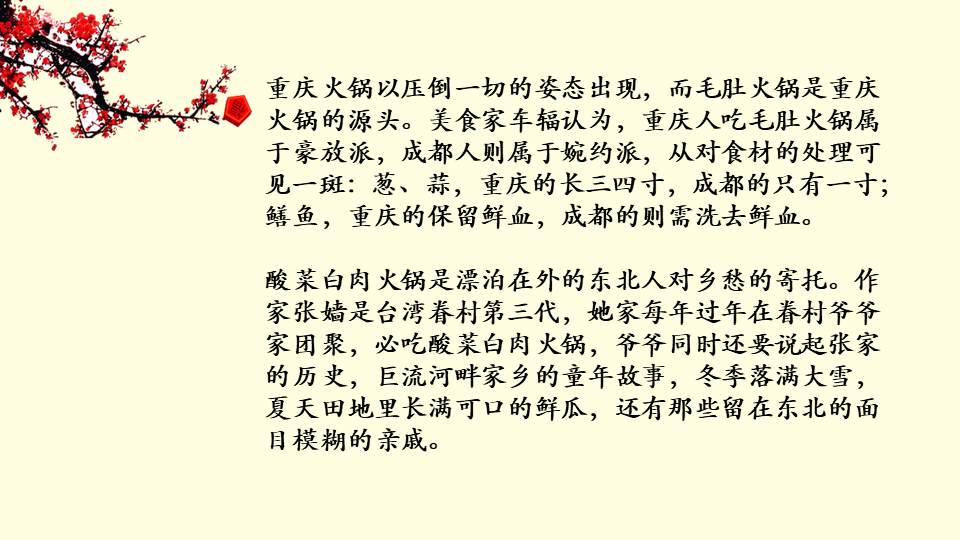 重庆火锅以压倒一切的姿态出现，而毛肚火锅是重庆
火锅的源头。美食家车辐认为，重庆人吃毛肚火锅属
于豪放派，成都人则属于婉约派，从对食材的处理可
见一斑：葱、蒜，重庆的长三四寸，成都的只有一寸；
鳝鱼，重庆的保留鲜血，成都的则需洗去鲜血。
酸菜白肉火锅是漂泊在外的东北人对乡愁的寄托。作
家张嫱是台湾眷村第三代，她家每年过年在眷村爷爷
家团聚，必吃酸菜白肉火锅，爷爷同时还要说起张家
的历史，巨流河畔家乡的童年故事，冬季落满大雪，
夏天田地里长满可口的鲜瓜，还有那些留在东北的面
目模糊的亲戚。